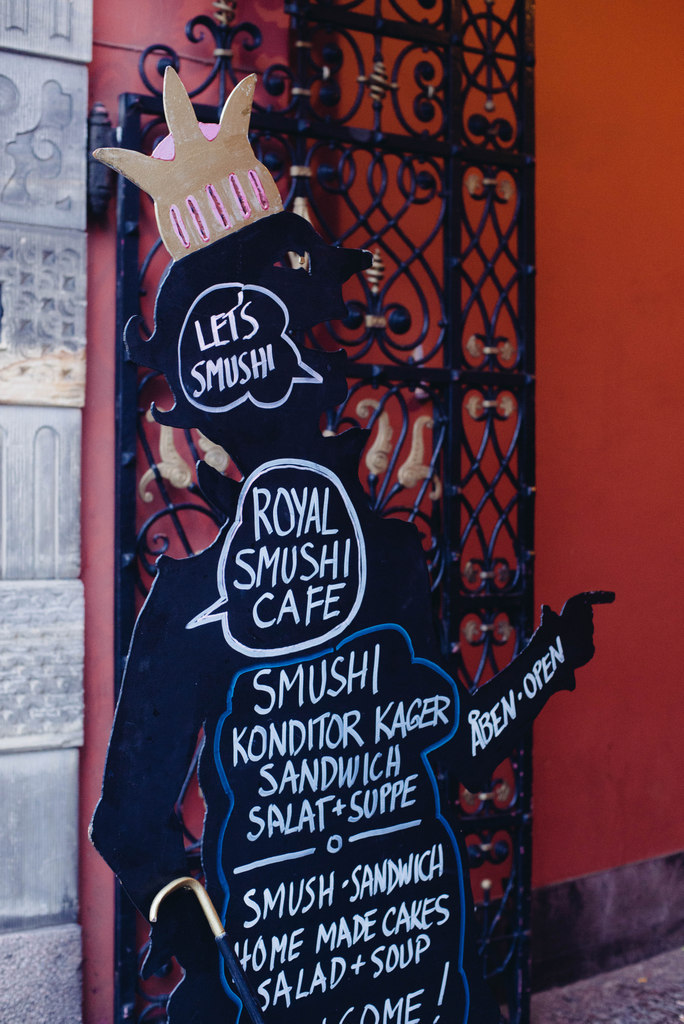 LET'S
SMUSHI
ROYAL
SMUSHI
CAFE
SMUSHI
KONDITOR KAGER
SANDWICH
SALAT + SUPPE
ÅBEN · OPEN
SMUSH · SANDWICH
HOME MADE CAKES
SALAD + SOUP